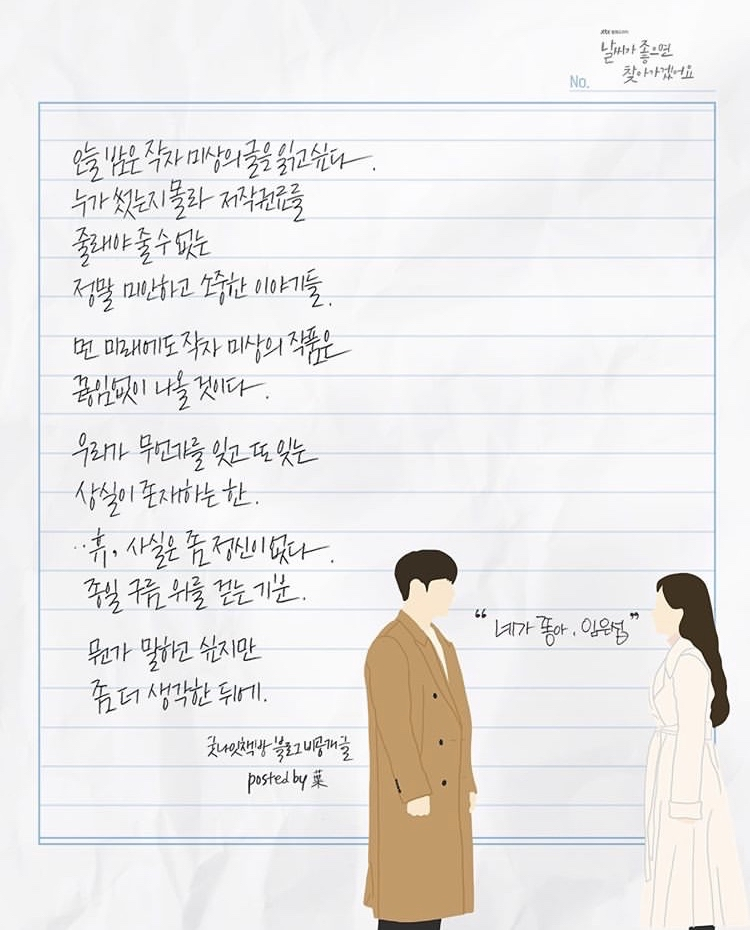 JTBC 월화드라마
날씨가 좋으면
찾아가겠어요
No.
오늘 밤은 작자 미상의 글을 읽고 싶다.
누가 썼는지 몰라 저작권료를
줄래야 줄 수 없는
정말 미안하고 소중한 이야기들.
먼 미래에도 작자 미상의 작품은
끊임없이 나올 것이다.
우리가 무언가를 잊고 또 잊는
상실이 존재하는 한.
..휴, 사실은 좀 정신이 없다.
종일 구름 위를 걷는 기분.
뭔가 말하고 싶지만
좀 더 생각한 뒤에.
굿나잇책방 블로그 비공개글
posted by 葉
“네가 좋아. 임은섭”